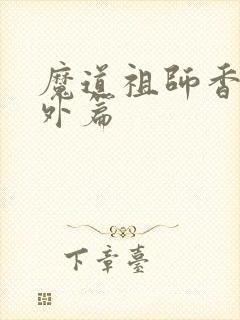 魔道祖師香
外篇
下章臺